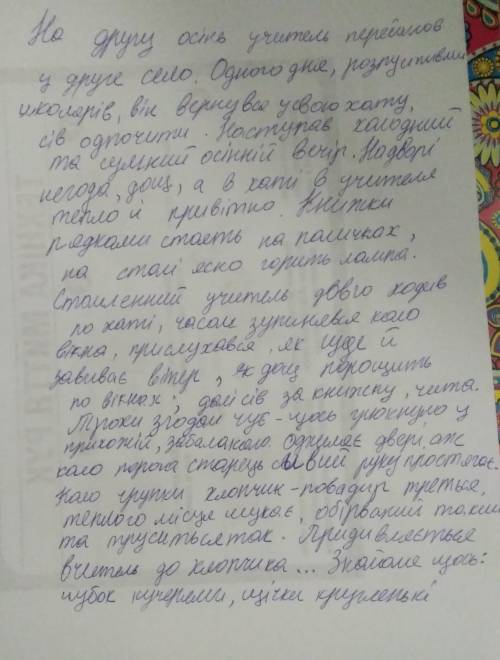 На другу осінь учитель перебапов
у друге село. Одного дня, розпустивши
школярів, він вернувся у свою хату,
сів одпочити. Наступав холодний
та сумний осінній вечір. Надворі
негода, дощ, а в хаті в учителя
тепло й привітно. Книжки
рядками стоять на поличках,
на столі ясно горить лампа.
Стомлений учитель довго ходив
по хаті, часом зупинявся коло
вікна, прислухався, як шуде й
завиває вітер, як дощ порощить
по вікнах; далі сів за книжку, чита.
Трохи згодом чує - щось грюкнуло у
прихожій, забалакало. Одхиляє двері, аж
коло порога старець сивий руку простягає.
Коло грубки хлопчик - повадир треться,
теплого місця шукає, обірваний такий
та труситься так. Придивляється
вчитель до хлопчика... Знайоме щось:
чубок кучерями, щічки кругленькі